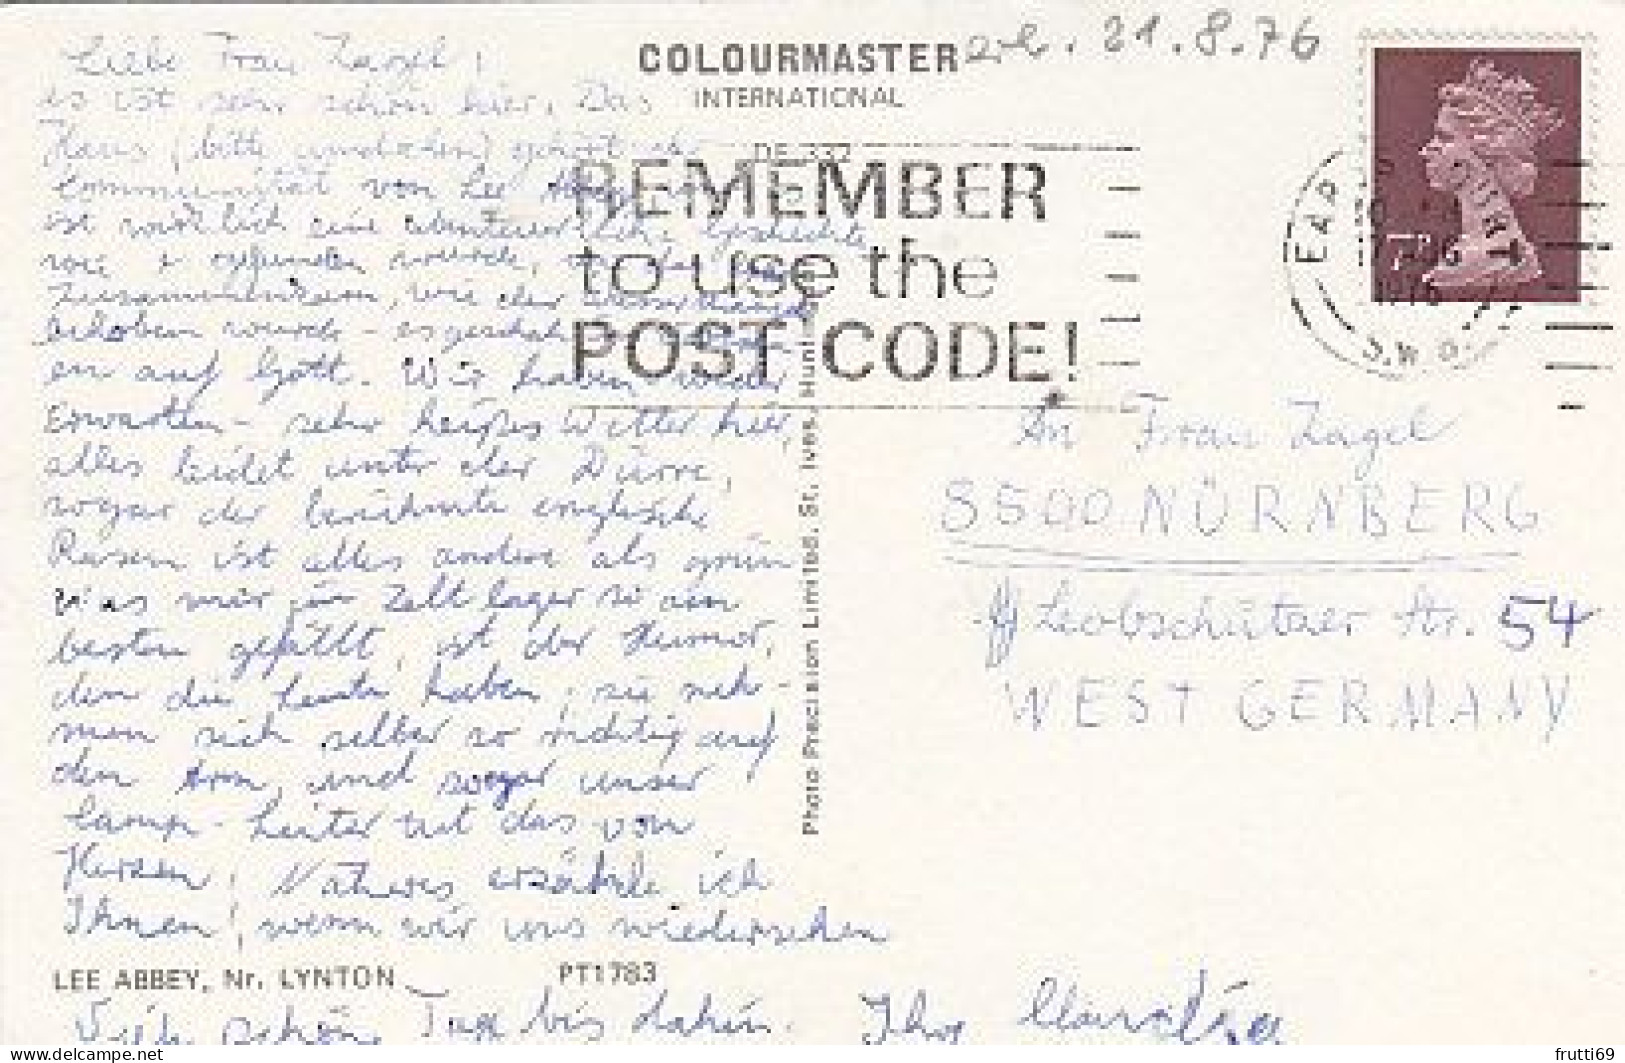 Liebe Frau Zagel!
es ist sehr schön hier. Das
Haus (bitte umdrehen) gehört der
Communität von Lee
ist wirklich eine abenteuerliche Geschichte
wie gefunden wurde,
Zusammenkam, wie der
erhoben wurde - es geschah
en auf Gott. Wir haben - wider
Erwarten - sehr heißes Wetter hier,
alles leidet unter der Dürre,
sogar der berühmte englische
Rasen ist alles andere als grün
Was mir im Zeltlager so am
besten gefällt, ist der Humor,
den die Leute haben; sie neh-
men sich selber so richtig auf
den Arm, und sogar unser
Camp-Leiter tut das von
Herzen! Näheres erzähle ich
Ihnen, wenn wir uns wiedersehen
LEE ABBEY, Nr. LYNTON
PT1783
Viele schöne Tage bis dahin. Ihre
COLOURMASTER
INTERNATIONAL
erh. 21.8.76
REMEMBER
to use the
POST CODE!
Photo Precision Limited, St. Ives, Hunts
7P
1976
An Frau Zagel
8500 NÜRNBERG
Leobschützer Str. 54
WEST GERMANY
frutti69